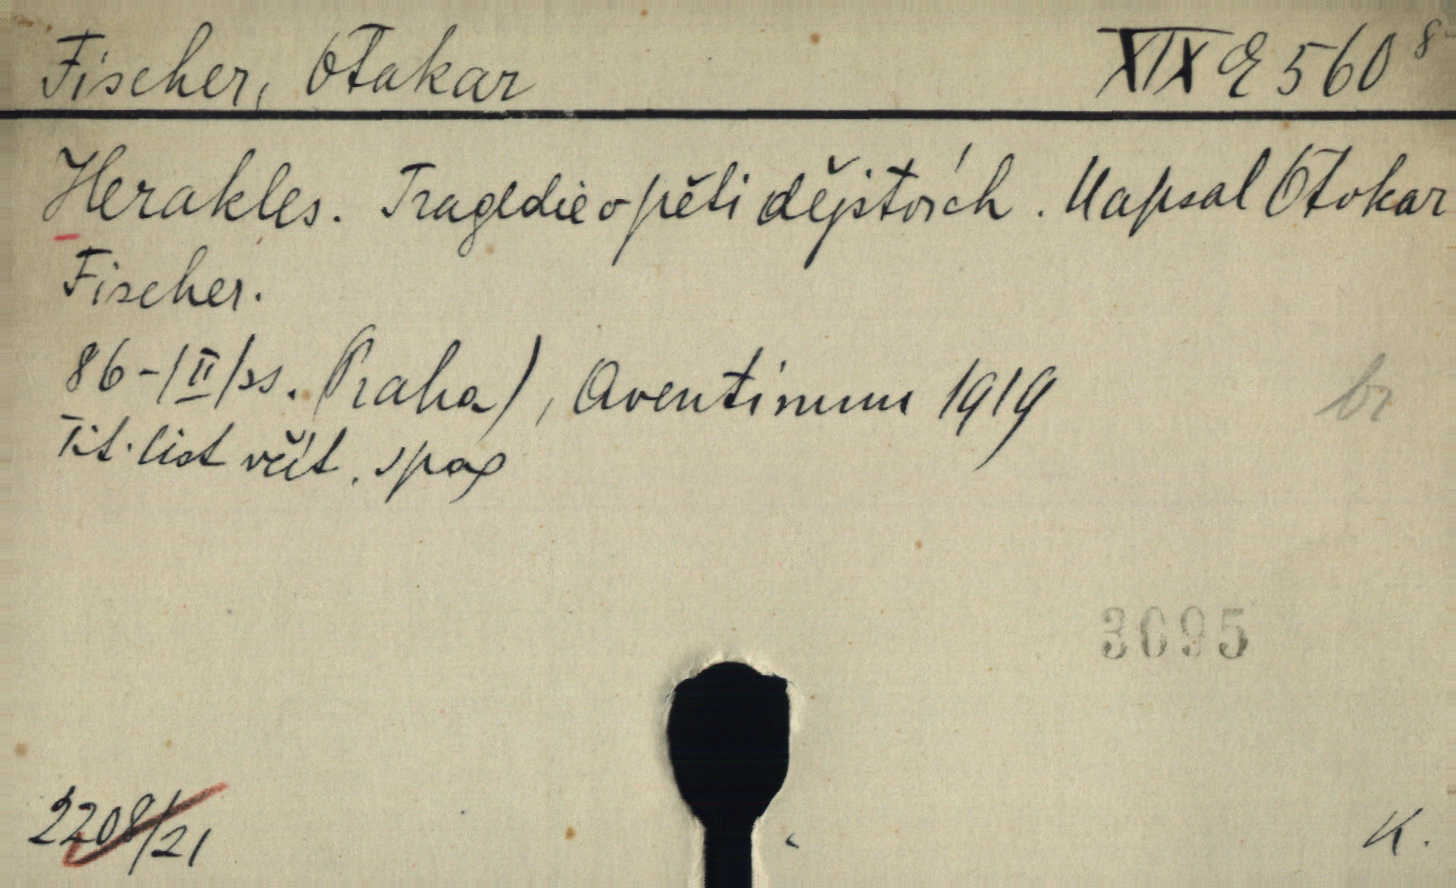 Fischer, Otakar XIX E 560
Herakles. Tragedie o pěti dějstvích. Napsal Otokar
Fischer.
86-/II/ss. (Praha), Aventinum 1919 br
Tit. list včít.
3095
2208/21 K.